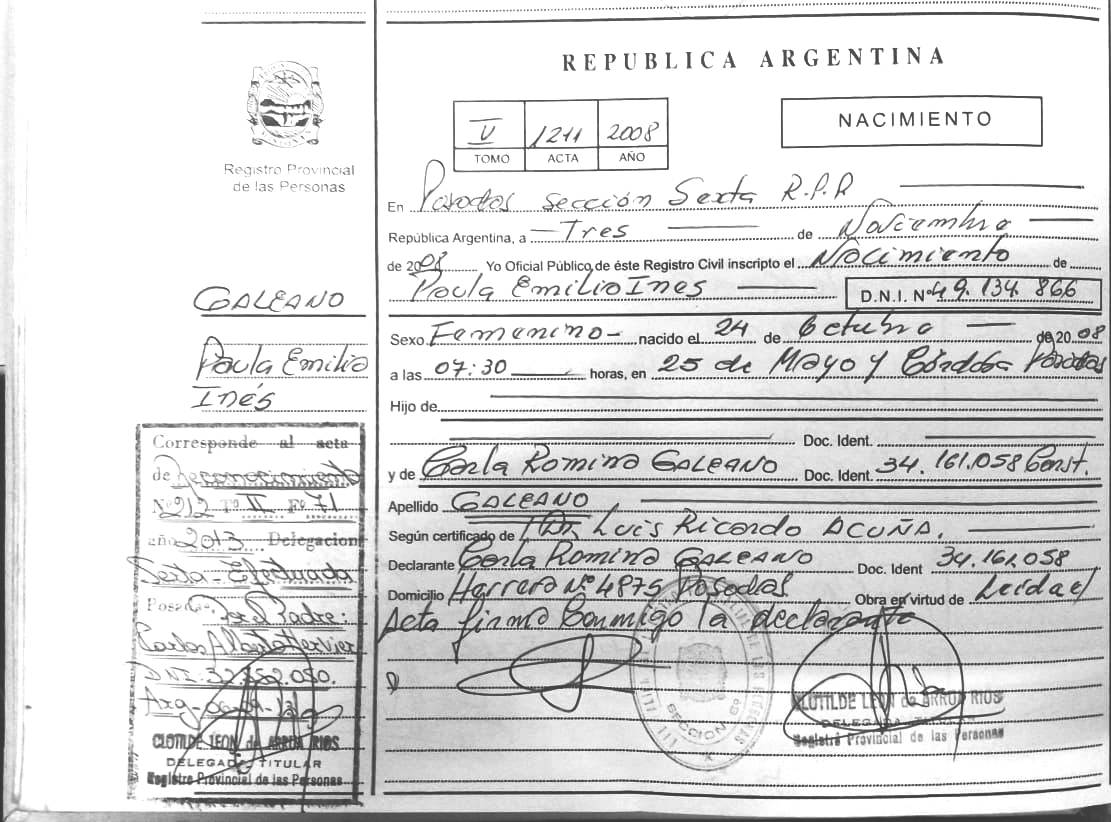 REPUBLICA ARGENTINA
V 1211 2008
TOMO ACTA AÑO
NACIMIENTO
Registro Provincial
de las Personas
En Posadas Sección Sexta R.P.P
República Argentina, a Tres de Noviembre
de 2008 Yo Oficial Público de éste Registro Civil inscripto el Nacimiento de
Paula Emilia Ines D.N.I. Nº 49.134.866
Sexo Femenino nacido el 24 de Octubre de 2008
a las 07:30 horas, en 25 de Mayo y Córdoba Posadas
Hijo de
Doc. Ident.
y de Carla Romina GALEANO Doc. Ident. 34.161.058 Const.
Apellido GALEANO
Según certificado de Dr. Luis Ricardo ACUÑA.
Declarante Carla Romina GALEANO Doc. Ident 34.161.058
Domicilio Herrera Nº 4875 Posadas Obra en virtud de Leida el
Acta firma Conmigo la declarante
SECCION 6º
CLOTILDE LEON de ARRUA RIOS
DELEGADA TITULAR
Registro Provincial de las Personas
GALEANO
Paula Emilia
Inés
Corresponde al acta
de Reconocimiento
Nº 212 Tº II Fº 71
año 2013 Delegacion
Sexta - Efectuada
Posadas, Por el Padre:
Carlos Alberto Hervier
DNI: 32.552.050.
Arg - 06-09-13
CLOTILDE LEON de ARRUA RIOS
DELEGADA TITULAR
Registro Provincial de las Personas